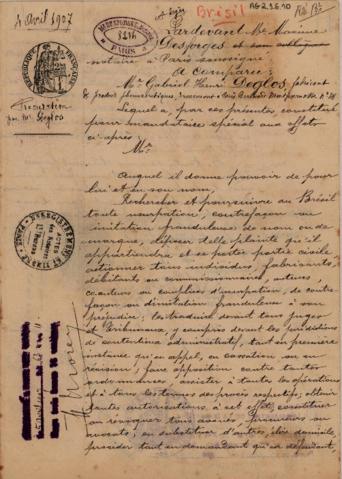 4 Avril 1907
Brésil
Me DESFORGES, NOTAIRE
PARIS
RÉPUBLIQUE FRANÇAISE
Procuration
par Mr Deglos
Pardevant Me Maxime
Desforges et son collègue
notaire à Paris soussigné
a comparu:
Mr Gabriel Henri Deglos, fabricant
de produits pharmaceutiques, demeurant à Paris, Boulevard Montparnasse
Lequel a, par ces présentes, constitué
pour mandataire spécial aux effets
ci-après:
Mr
Auquel il donne pouvoir de pour
lui et en son nom,
Rechercher et poursuivre au Brésil
toute usurpation, contrefaçon ou
imitation frauduleuse de nom ou de
marque, déposer telle plainte qu'il
appartiendra et se porter partie civile
actionner tous individus, fabricants,
débitants ou commissionnaires, auteurs
coauteurs ou complices d'usurpation, de contre
façon ou d'imitation frauduleuse à son
préjudice; les traduire devant tous juges
et Tribunaux, y compris devant les juridictions
de contentieux administratif, tant en première
instance qu'en appel, en cassation ou en
révision; faire opposition contre toutes
ordonnances, assister à toutes les opérations
et à tous les termes des procès respectifs; obtenir
toutes autorisations à cet effet, constituer
ou révoquer tous avoués, procureurs ou
avocats; en substituer d'autres, élire domicile
procéder tant en demandant qu'en défendant,
ENREGISTREMENT ET TIMBRE
PARIS
ACTES